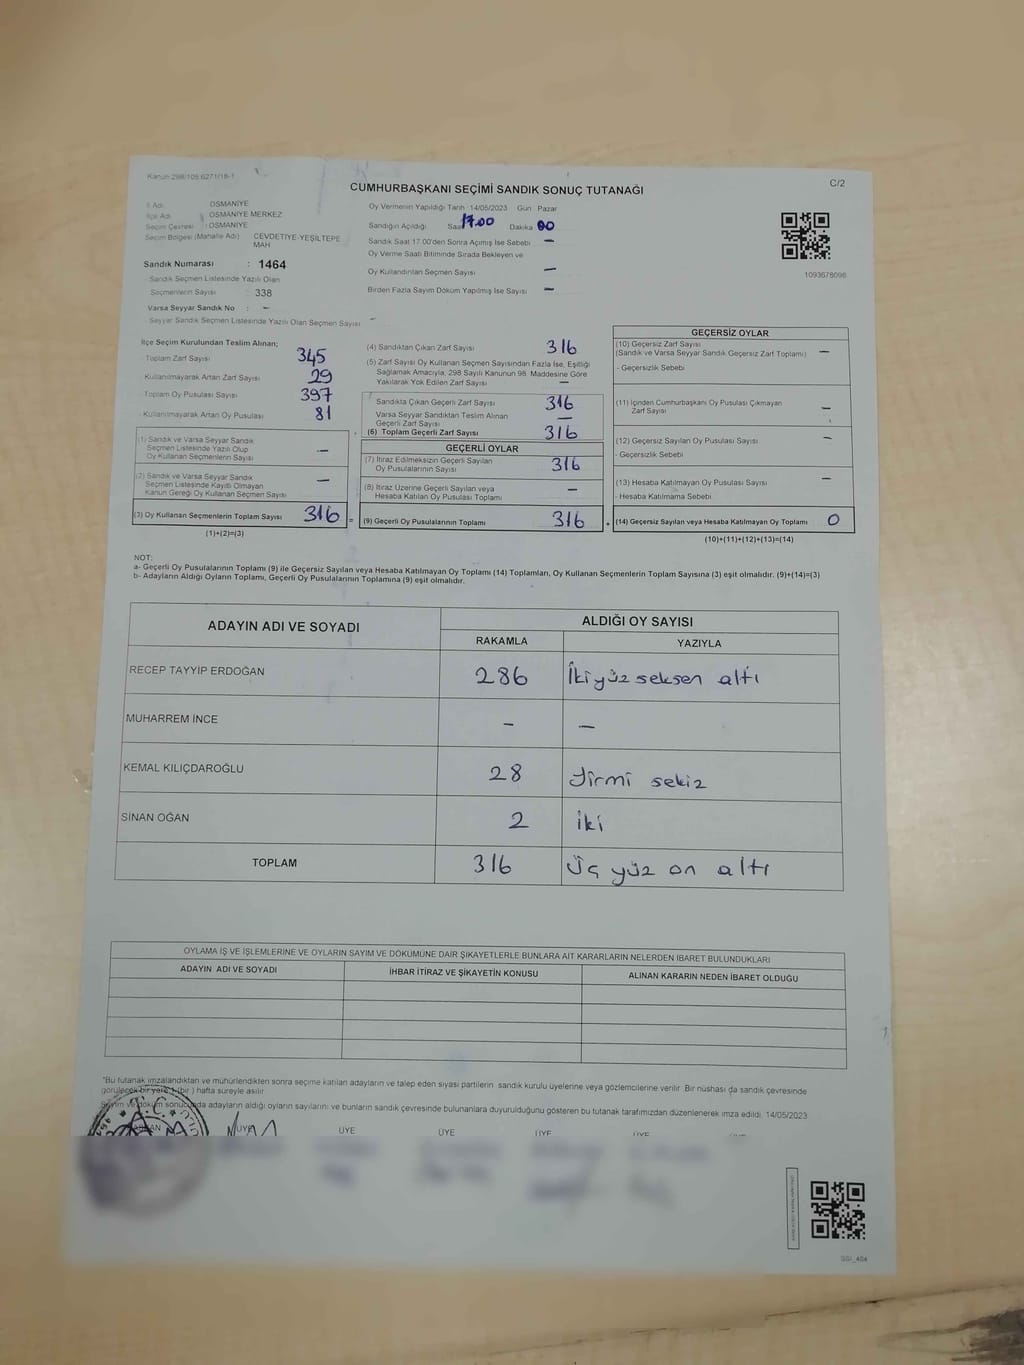 Kanun 298/105 6271/18-1
C/2
CUMHURBAŞKANI SEÇİMİ SANDIK SONUÇ TUTANAĞI
İl Adı : OSMANİYE
İlçe Adı : OSMANİYE MERKEZ
Seçim Çevresi : OSMANİYE
Seçim Bölgesi (Mahalle Adı) : CEVDETİYE-YEŞİLTEPE MAH
Sandık Numarası : 1464
Sandık Seçmen Listesinde Yazılı Olan
Seçmenlerin Sayısı : 338
Varsa Seyyar Sandık No : -
Seyyar Sandık Seçmen Listesinde Yazılı Olan Seçmen Sayısı -
Oy Vermenin Yapıldığı Tarih :14/05/2023 Gün : Pazar
Sandığın Açıldığı Saat 17.00 Dakika 00
Sandık Saat 17.00'den Sonra Açımış İse Sebebi -
Oy Verme Saati Bitiminde Sırada Bekleyen ve
Oy Kullandırılan Seçmen Sayısı -
Birden Fazla Sayım Döküm Yapılmış İse Sayısı -
1093678098
İlçe Seçim Kurulundan Teslim Alınan;
Toplam Zarf Sayısı 345
Kullanılmayarak Artan Zarf Sayısı 29
Toplam Oy Pusulası Sayısı 397
Kullanılmayarak Artan Oy Pusulası 81
(1) Sandık ve Varsa Seyyar Sandık
Seçmen Listesinde Yazılı Olup
Oy Kullanan Seçmenlerin Sayısı -
(2) Sandık ve Varsa Seyyar Sandık
Seçmen Listesinde Kayıtlı Olmayan
Kanun Gereği Oy Kullanan Seçmen Sayısı -
(3) Oy Kullanan Seçmenlerin Toplam Sayısı 316 =
(1)+(2)=(3)
(4) Sandıktan Çıkan Zarf Sayısı 316
(5) Zarf Sayısı Oy Kullanan Seçmen Sayısından Fazla İse, Eşitliği
Sağlamak Amacıyla, 298 Sayılı Kanunun 98. Maddesine Göre
Yakılarak Yok Edilen Zarf Sayısı -
Sandıkta Çıkan Geçerli Zarf Sayısı 316
Varsa Seyyar Sandıktan Teslim Alınan
Geçerli Zarf Sayısı -
(6) Toplam Geçerli Zarf Sayısı 316
GEÇERLİ OYLAR
(7) İtiraz Edilmeksizin Geçerli Sayılan
Oy Pusulalarının Sayısı 316
(8) İtiraz Üzerine Geçerli Sayılan veya
Hesaba Katılan Oy Pusulası Toplamı -
(9) Geçerli Oy Pusulalarının Toplamı 316 +
GEÇERSİZ OYLAR
(10) Geçersiz Zarf Sayısı
(Sandık ve Varsa Seyyar Sandık Geçersiz Zarf Toplamı) -
- Geçersizlik Sebebi
(11) İçinden Cumhurbaşkanı Oy Pusulası Çıkmayan
Zarf Sayısı -
(12) Geçersiz Sayılan Oy Pusulası Sayısı -
- Geçersizlik Sebebi
(13) Hesaba Katılmayan Oy Pusulası Sayısı -
- Hesaba Katılmama Sebebi
(14) Geçersiz Sayılan veya Hesaba Katılmayan Oy Toplamı 0
(10)+(11)+(12)+(13)=(14)
NOT:
a- Geçerli Oy Pusulalarının Toplamı (9) ile Geçersiz Sayılan veya Hesaba Katılmayan Oy Toplamı (14) Toplamları, Oy Kullanan Seçmenlerin Toplam Sayısına (3) eşit olmalıdır. (9)+(14)=(3)
b- Adayların Aldığı Oyların Toplamı, Geçerli Oy Pusulalarının Toplamına (9) eşit olmalıdır.
ADAYIN ADI VE SOYADI
ALDIĞI OY SAYISI
RAKAMLA YAZIYLA
RECEP TAYYİP ERDOĞAN 286 İki yüz seksen altı
MUHARREM İNCE - -
KEMAL KILIÇDAROĞLU 28 Yirmi sekiz
SİNAN OĞAN 2 iki
TOPLAM 316 Üç yüz on altı
OYLAMA İŞ VE İŞLEMLERİNE VE OYLARIN SAYIM VE DÖKÜMÜNE DAİR ŞİKAYETLERLE BUNLARA AİT KARARLARIN NELERDEN İBARET BULUNDUKLARI
ADAYIN ADI VE SOYADI İHBAR İTİRAZ VE ŞİKAYETİN KONUSU ALINAN KARARIN NEDEN İBARET OLDUĞU
"Bu tutanak imzalandıktan ve mühürlendikten sonra seçime katılan adayların ve talep eden siyasi partilerin sandık kurulu üyelerine veya gözlemcilerine verilir. Bir nüshası da sandık çevresinde
görülecek bir yere 1 (bir ) hafta süreyle asılır
Sayım ve döküm sonucunda adayların aldığı oyların sayılarını ve bunların sandık çevresinde bulunanlara duyurulduğunu gösteren bu tutanak tarafımızdan düzenlenerek imza edildi. 14/05/2023
T.C.
BAŞKAN ÜYE ÜYE ÜYE ÜYE ÜYE
SSI_404